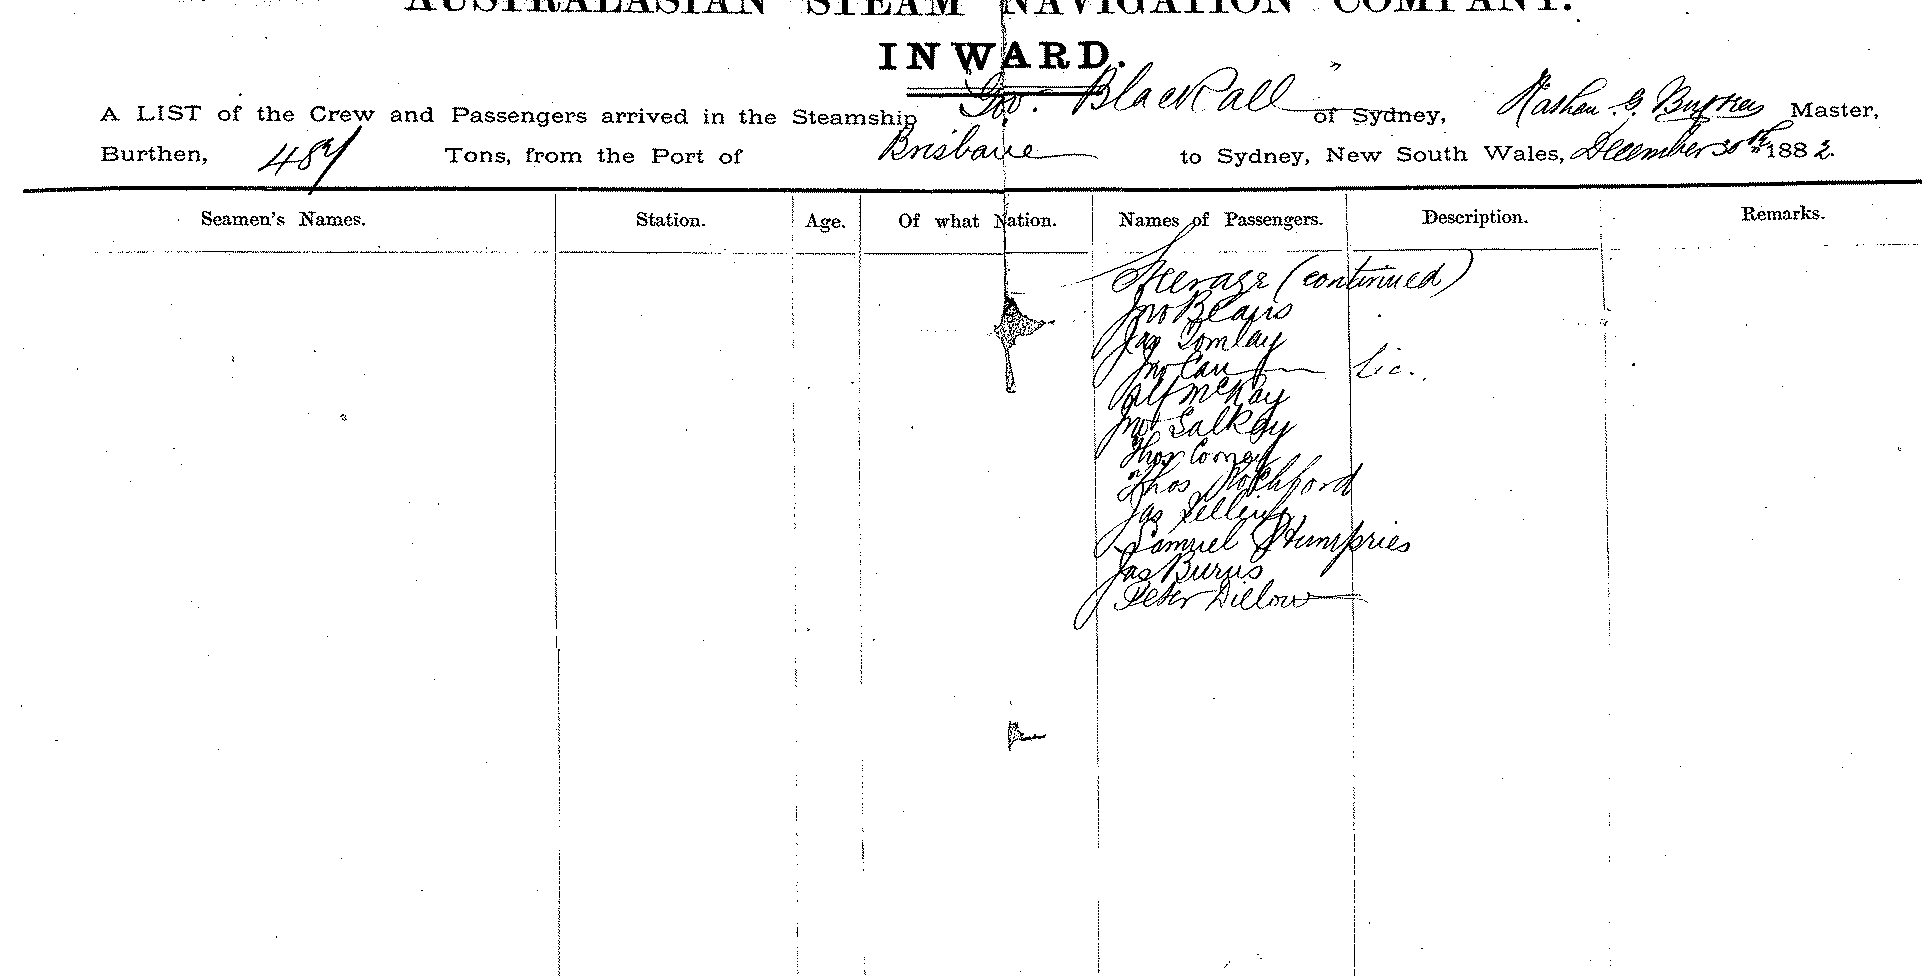 AUSTRALASIAN STEAM NAVIGATION COMPANY.
INWARD.
A LIST of the Crew and Passengers arrived in the Steamship Gov. Blackall of Sydney, G. Master,
Burthen, 487 Tons, from the Port of Brisbane to Sydney, New South Wales, December 30th 1882.
Seamen's Names. Station. Age. Of what Nation. Names of Passengers. Description. Remarks.
Steerage (continued)
Jno Blair
Jas Tomlay
Jno
Alf McKay
Jno
Thos
Thos Rochford
Jas
Samuel Humphries
Jas Burns
Peter Dillow